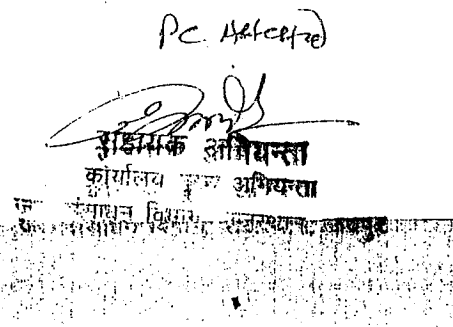 P.C. Attested
सहायक अभियन्ता
कार्यालय मुख्य अभियन्ता
संसाधन विभाग राजस्थान, जयपुर